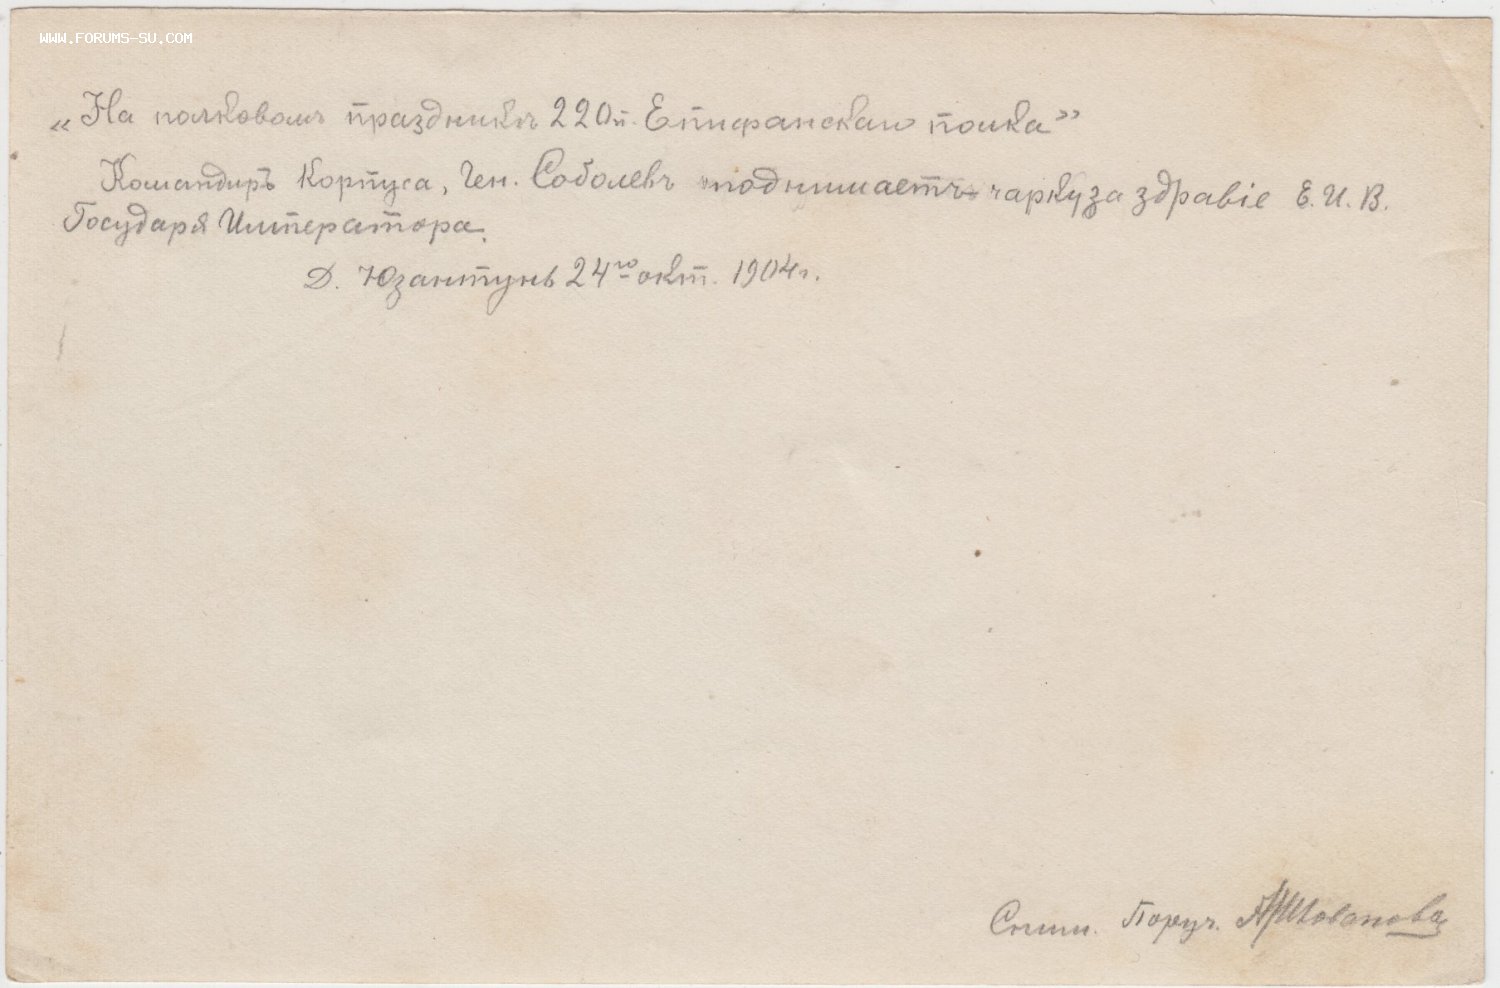 WWW.FORUMS-SU.COM
„На полковомъ праздникѣ 220п. Епифанскаго полка”
Командиръ Корпуса, Ген. Соболевъ поднимаетъ чарку за здравіе Е. И. В.
Государя Императора.
Д. Юзантунь 24го окт. 1904 г.
Сним. Поруч.